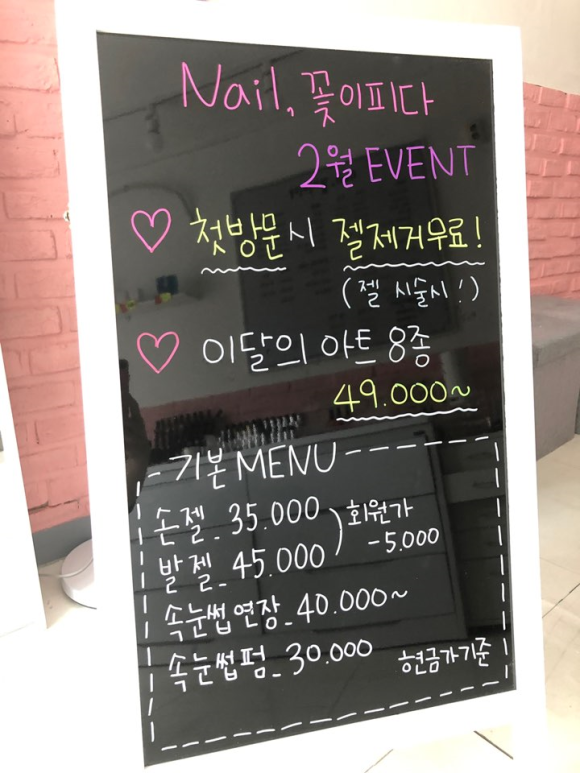 Nail, 꽃이피다
2월 EVENT
♡ 첫방문시 젤제거무료!
(젤 시술시!)
♡ 이달의 아트 8종
49.000~
기본 MENU
손젤_35.000
발젤_45.000
) 회원가
-5.000
속눈썹연장_40.000~
속눈썹펌_30.000
현금가기준